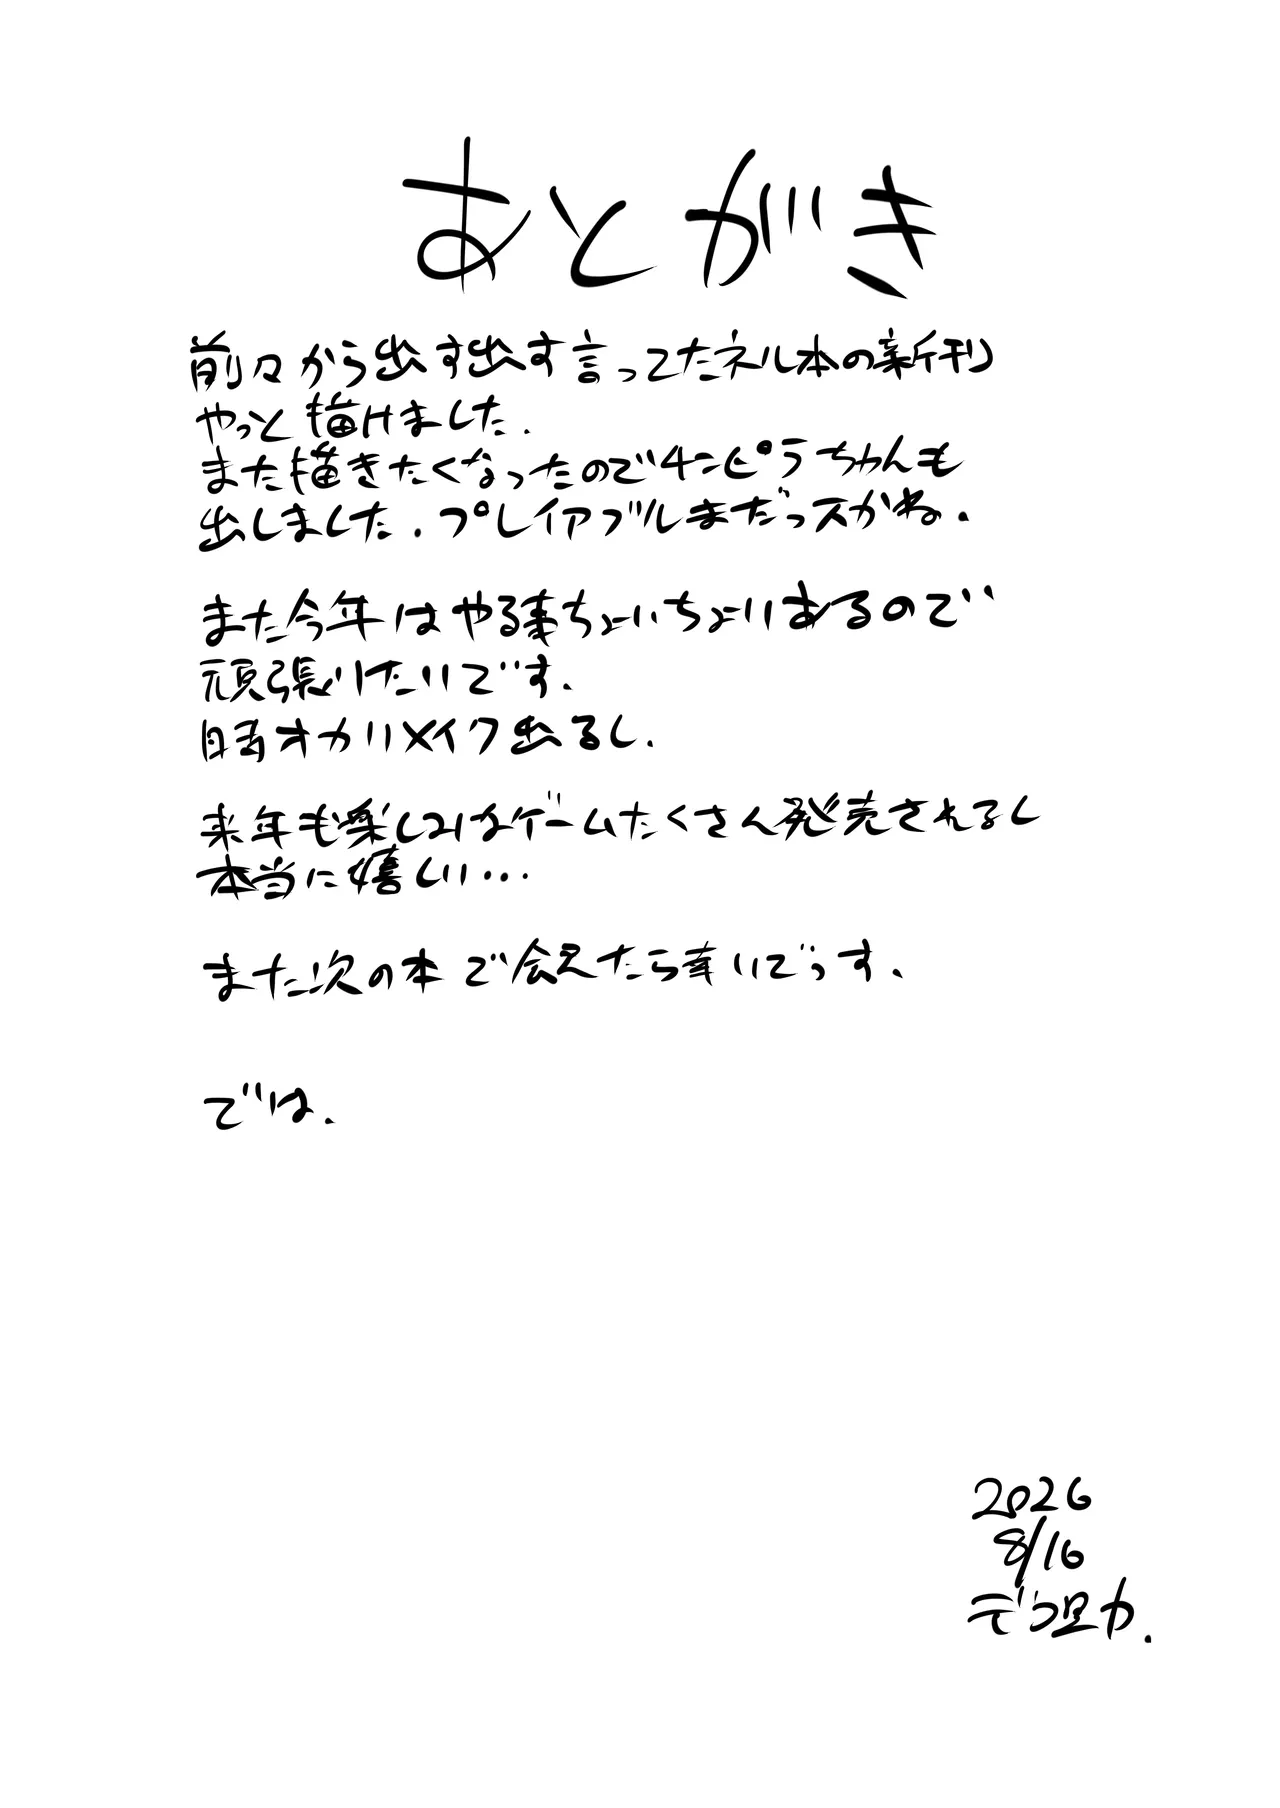 あとがき
前々から出す出す言ってたネル本の新刊
やっと描けました.
また描きたくなったのでチンピラちゃんも
出しました.プレイアブルまだっスかね.
また今年はやる事ちょいちょいあるので
頑張りたいです.
時オカリメイク出るし.
来年も楽しみなゲームたくさん発売されるし
本当に嬉しい...
また次の本で会えたら幸いでっす、
では.
2026
8/16